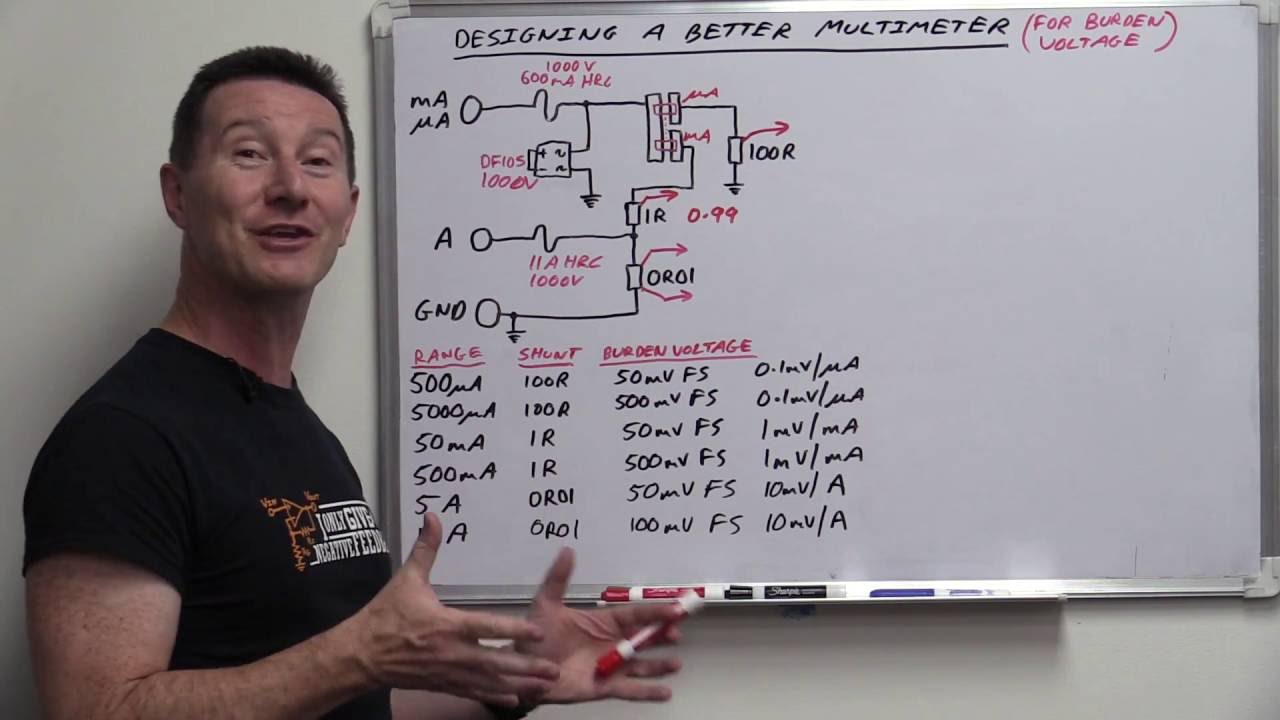 DESIGNING A BETTER MULTIMETER (FOR BURDEN VOLTAGE)
1000V
600mA HRC
mA
μA
μA
mA
DF10S
1000V
+ ~
- ~
100R
1R 0.99
A
11A HRC
1000V
0R01
GND
RANGE SHUNT BURDEN VOLTAGE
500μA 100R 50mV FS 0.1mV/μA
5000μA 100R 500mV FS 0.1mV/μA
50mA 1R 50mV FS 1mV/mA
500mA 1R 500mV FS 1mV/mA
5A 0R01 50mV FS 10mV/A
A 0R01 100mV FS 10mV/A
VIN VOUT
I ONLY GIVE
NEGATIVE FEED
Sharpie
Sharpie